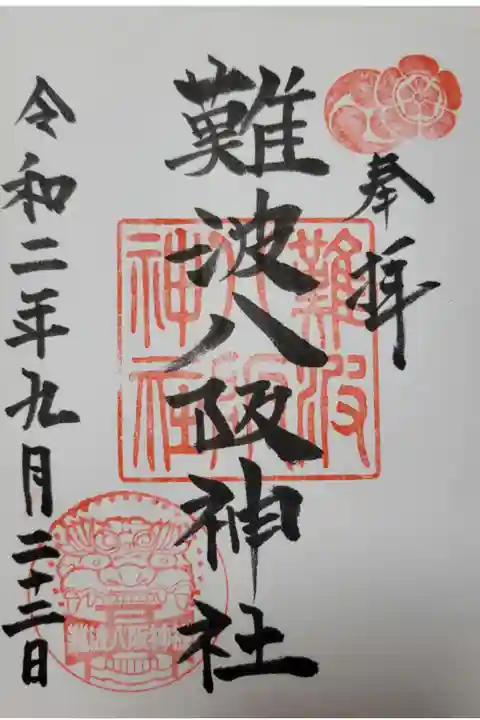 奉拝
難波八阪神社
難波八阪神社
令和二年九月二十三日
難波八阪神社